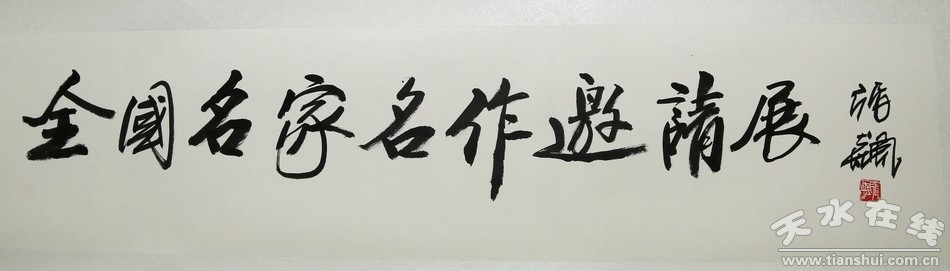 全國名家名作邀請展
天水在线
www.tianshui.com.cn